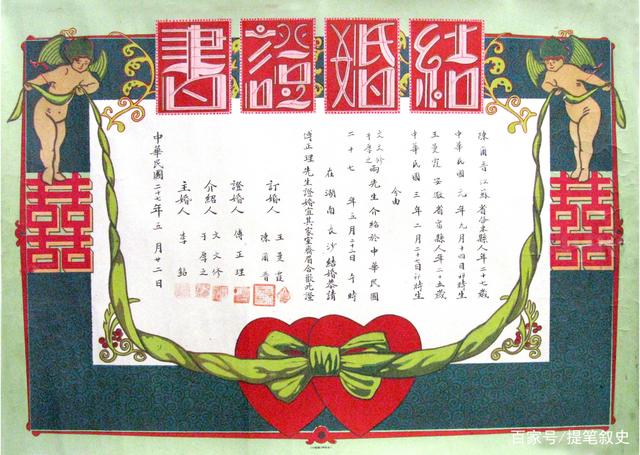 結婚證書
陳爾晋 江蘇省 縣人年二十七歲
中華民國 元年九月十四日 時生
王曼霞 安徽省 縣人年二十五歲
中華民國 三年二月二十日 時生
今由
文文修 于厚之 兩先生介紹於中華民國
二十七年五月二十二日午時
在湖南長沙結婚恭請
傅正理先生證婚宜其家室 合敬此證
訂婚人 王曼霞 陳爾晋
證婚人 傅正理
介紹人 文文修 于厚之
主婚人 李銘
中華民國二十七年五月廿二日
囍
囍
百家号/提笔叙史